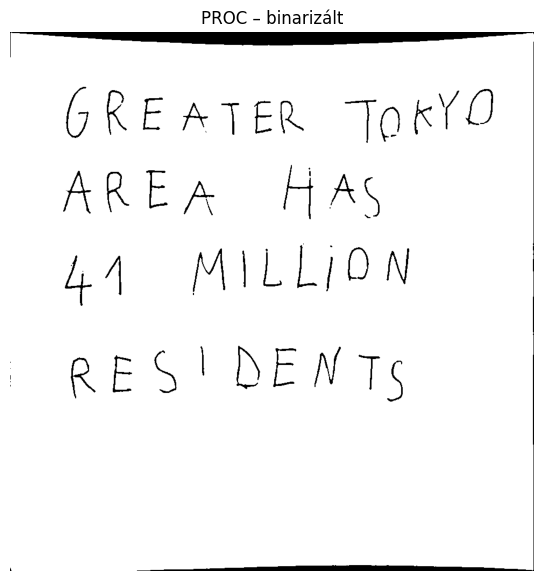 PROC – binarizált
GREATER TOKYO
AREA HAS
41 MILLiON
RESIDENTS